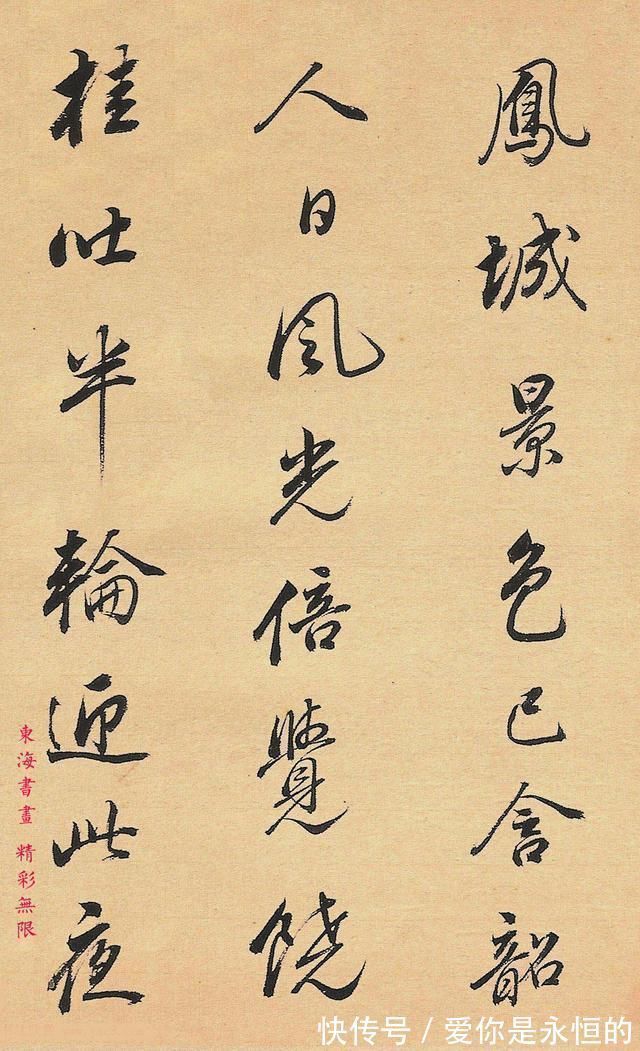 鳳城景色已含韶
人日風光倍覺饒
桂吐半輪迎此夜
東海書畫 精彩無限
快传号 / 爱你是永恒的